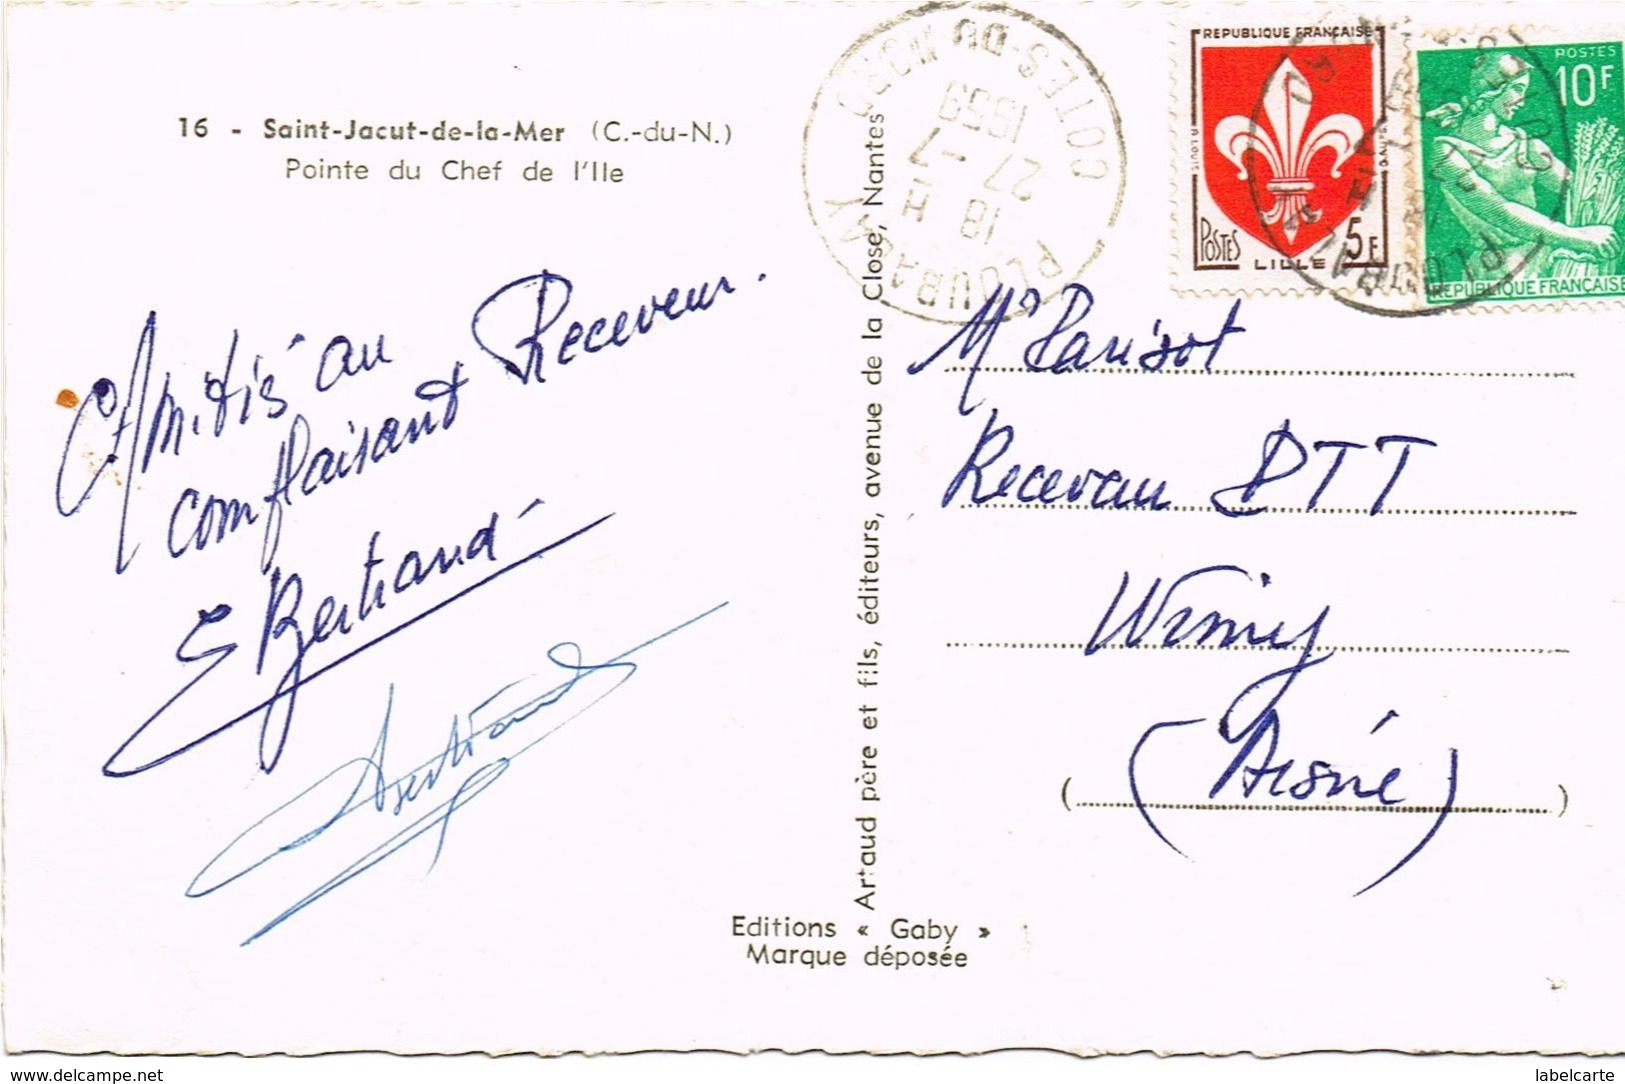 16 - Saint-Jacut-de-la-Mer (C.-du-N.)
Pointe du Chef de l'Ile
Amitiés au
complaisant Receveur.
E Bertrand
Bertrand
Artaud père et fils, éditeurs, avenue de la Close, Nantes
Editions « Gaby »
Marque déposée
COTES-DU-NORD
18 H
27 -7
1959
PLOUBALAY
REPUBLIQUE FRANÇAISE
POSTES
LILLE
5F
POSTES
10F
REPUBLIQUE FRANÇAISE
Mr Parisot
Receveur PTT
Wimy
(Aisne)
www.delcampe.net
labelcarte